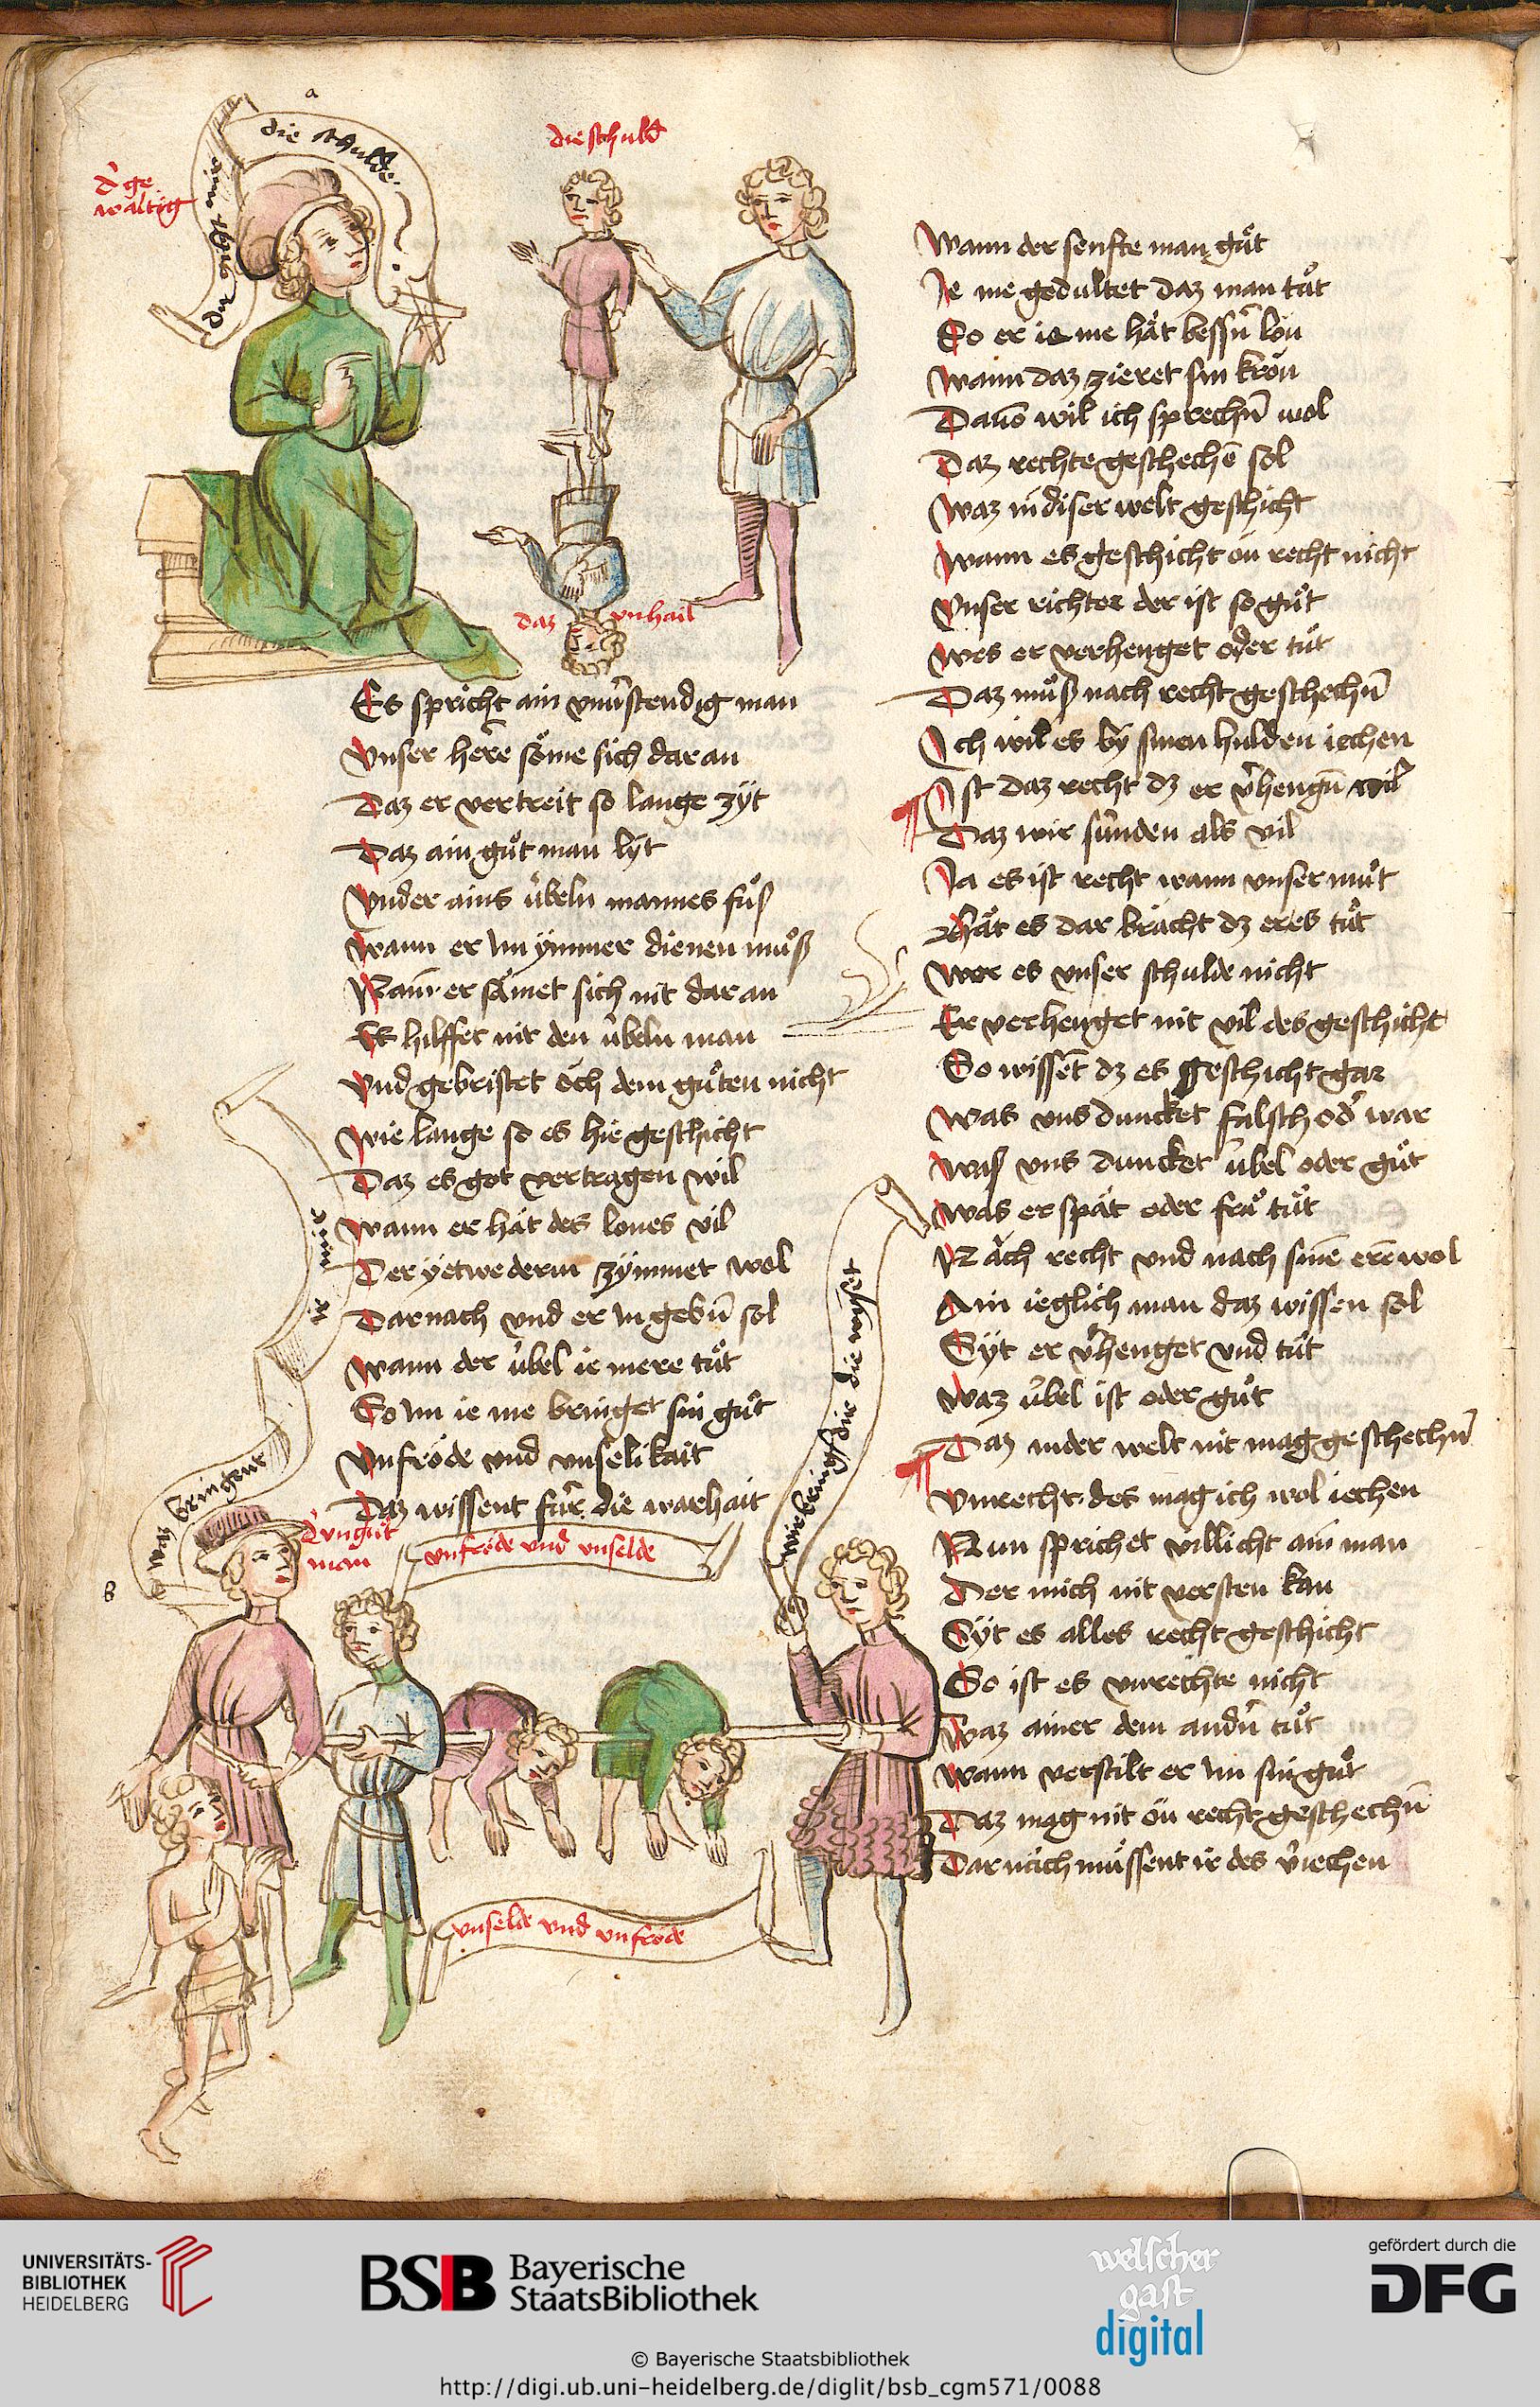 a
die schulde
du ... min
d' ge
waltig
die schuld
daz vnhail
Es spricht ain vnuerstendig man
Vnser herre söme sich dar an
Daz er vertreit so lange zÿt
Daz ain gůt man lÿt
Vnder ains v̈beln mannes fůß
Wann er im ÿmmer dienen můß
Nain er sämet sich nit dar an
Es hilffet nit den v̈beln man
Vnd gebristet öch dem gůten nicht
Wie lange so es hie geschicht
Daz es got vertragen wil
Wann er hät des lones vil
Der ÿetwederm zÿmmet wol
Darnach vnd er in gebn̄ sol
Wann der v̈bel ie mere tůt
So im ie me bringet sin gůt
Vnfröde vnd vnselikait
Daz wissent für die warhait
was bringent ir mir
B
d' vngůt
man
vnfröde vnd vnselde
wir bringen dir die
vnselde vnd vnfröde
Wann der senfte man gůt
Je me gedultet daz man tůt
So er ie me hät bessn̄ lön
Wann daz zieret sin krön
Dauō wil ich sprechn̄ wol
Daz rechte geschechē sol
Waz in diser welt geschicht
Wann es geschicht ön recht nicht
Vnser richter der ist so gůt
Wes er verhenget oder tůt
Daz můß nach recht geschechn̄
Ich wil es bÿ sinen hulden iechen
Ist daz recht dz er v'hengn̄ wil
Daz wir sünden als vil
Ja es ist recht wann vnser můt
Hät es dar brächt dz er es tůt
Wer es vnser schulde nicht
Er verhenget nit vil des geschicht
So wissēt dz es geschicht gar
Was vns duncket falsch od' war
Waß vns duncket v̈bel oder gůt
Was er spät oder frů tůt
Näch recht vnd nach sinē erē wol
Ain ieglich man daz wissen sol
Sÿt er v'henget vnd tůt
Waz v̈bel ist oder gůt
Daz in der welt nit mag geschechn̄
Vnrecht des mag ich wol iechen
Nun sprichet villicht ain man
Der mich nit versten kan
Sÿt es alles recht geschicht
So ist es vnrechte nicht
Waz ainer dem andn̄ tůt
Wann verstilt er im sin gůt
Daz mag nit ön recht geschechn̄
Darnäch müssent ir des v'iechen
UNIVERSITÄTS-
BIBLIOTHEK
HEIDELBERG
BSB Bayerische
StaatsBibliothek
welscher
gast
digital
gefördert durch die
DFG
© Bayerische Staatsbibliothek
http://digi.ub.uni-heidelberg.de/diglit/bsb_cgm571/0088